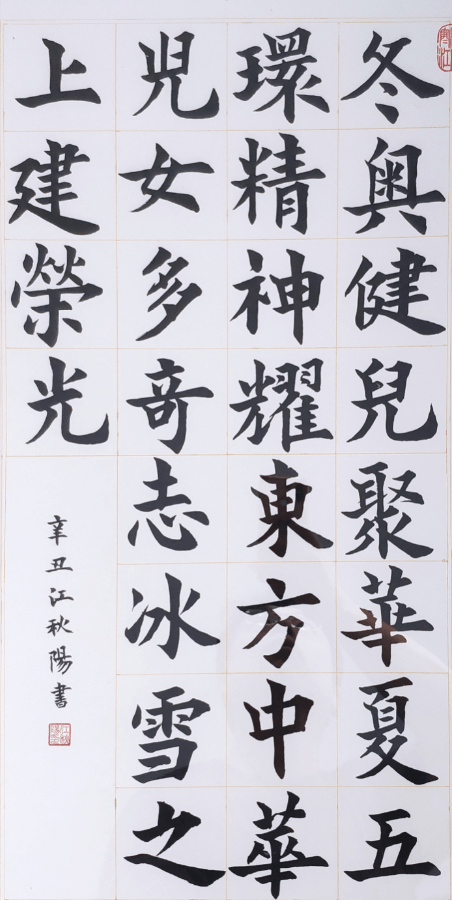 冬奥健兒聚華夏五
環精神耀東方中華
兒女多奇志冰雪之
上建榮光
辛丑江秋陽書